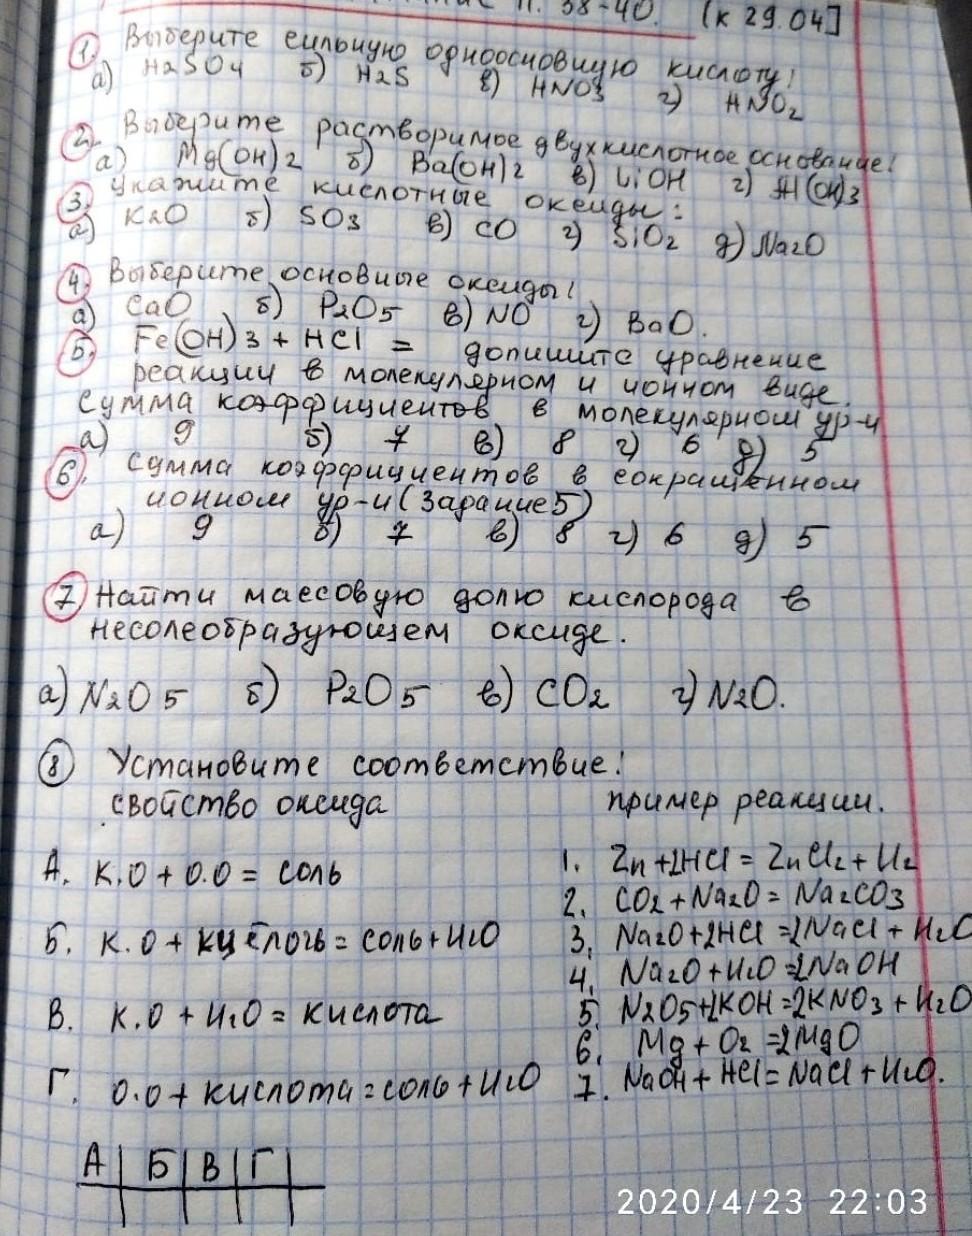 п. 38-40. (к 29.04]
1. Выберите сильную одноосновную кислоту!
а) H2SO4 б) H2S в) HNO3 г) HNO2
2. Выберите растворимое двухкислотное основание!
а) Mg(OH)2 б) Ba(OH)2 в) LiOH г) Al(OH)3
3. Укажите кислотные оксиды:
а) K2O б) SO3 в) CO г) SiO2 д) Na2O
4. Выберите основные оксиды!
а) CaO б) P2O5 в) NO г) BaO.
5. Fe(OH)3 + HCl = допишите уравнение
реакции в молекулярном и ионном виде.
Сумма коэффициентов в молекулярном ур-и
а) 9 б) 7 в) 8 г) 6 д) 5
6. Сумма коэффициентов в сокращенном
ионном ур-и (Задание 5)
а) 9 б) 7 в) 8 г) 6 д) 5
7. Найти массовую долю кислорода в
несолеобразующем оксиде.
а) N2O5 б) P2O5 в) CO2 г) N2O.
8 Установите соответствие!
свойство оксида пример реакции.
А. К.О + О.О = соль
Б. К.О + щёлочь = соль + H2O
В. К.О + H2O = кислота
Г. О.О + кислота = соль + H2O
1. Zn + 2HCl = ZnCl2 + H2
2. CO2 + Na2O = Na2CO3
3. Na2O + 2HCl = 2NaCl + H2O
4. Na2O + H2O = 2NaOH
5. N2O5 + 2KOH = 2KNO3 + H2O
6. Mg + O2 = 2MgO
7. NaOH + HCl = NaCl + H2O.
А Б В Г
2020/4/23 22:03